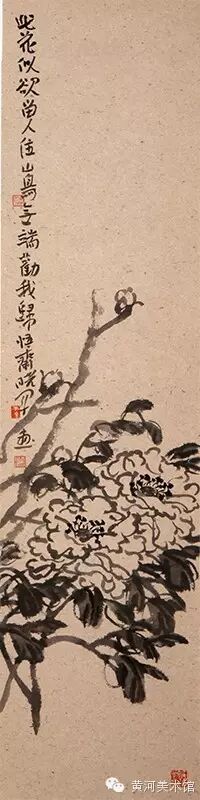 此花似欲留人住山鸟无端劝我归悟斋晓军画
黄河美术馆